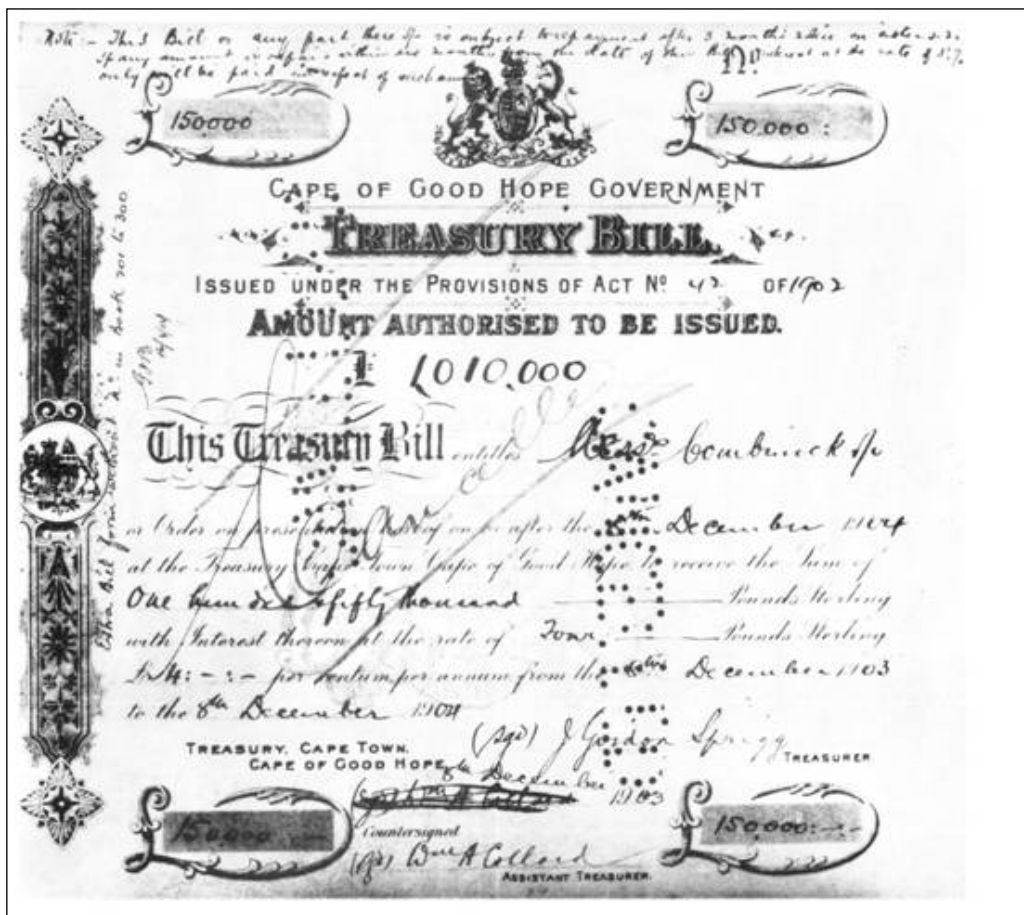 Note :- This Bill or any part thereof is subject to repayment after 3 months
If any amount is repaid within six months from the date of this Bill interest at the rate of 3%
only will be paid in respect of such
£ 150000
£ 150.000 :
CAPE OF GOOD HOPE GOVERNMENT
TREASURY BILL.
ISSUED UNDER THE PROVISIONS OF ACT No 42 OF 1902
AMOUNT AUTHORISED TO BE ISSUED.
£ 1,010,000
This Treasury Bill entitles Messrs Combrinck
or Order on presentation hereof on or after the 8th December 1904
at the Treasury Cape Town Cape of Good Hope to receive the Sum of
One hundred & fifty thousand Pounds Sterling
with Interest thereon at the rate of Four Pounds Sterling
£4 : - : - per centum per annum from the 8th December 1903
to the 8th December 1904
(sgd) J Gordon Sprigg
TREASURER
TREASURY, CAPE TOWN.
CAPE OF GOOD HOPE, 8th December 1903
Countersigned
(sgd) Wm A Collard
ASSISTANT TREASURER.
£ 150.000
£ 150.000 : - : -
Bill form in book 201 to 300